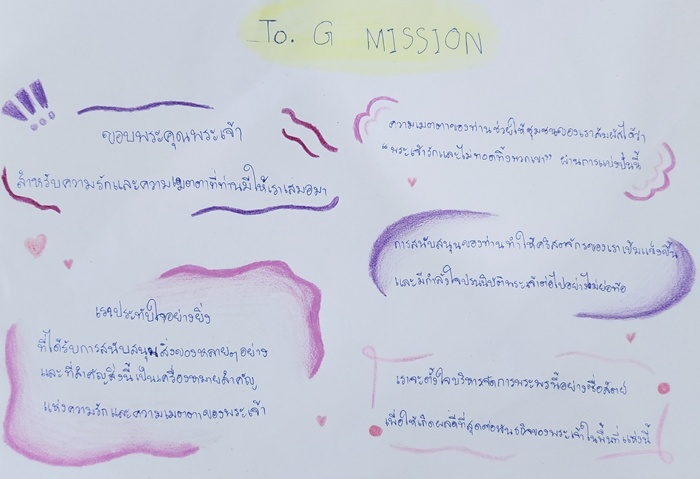 To. G MISSION
ขอบพระคุณพระเจ้า
สำหรับความรักและความเมตตาที่ท่านมีให้เราเสมอมา
เราประทับใจอย่างยิ่ง
ที่ได้รับการสนับสนุนสิ่งของหลายๆอย่าง
และที่สำคัญสิ่งนี้เป็นเครื่องหมายสำคัญ
แห่งความรักและความเมตตาของพระเจ้า
ความเมตตาของท่านช่วยให้ชุมชนของเราสัมผัสได้ว่า
“พระเจ้ารักและไม่ทอดทิ้งพวกเขา” ผ่านการแบ่งปันนี้
การสนับสนุนของท่านทำให้คริสตจักรของเราเข้มแข็งขึ้น
และมีกำลังใจปรนนิบัติพระเจ้าต่อไปอย่างไม่ย่อท้อ
เราจะตั้งใจบริหารจัดการพระพรนี้อย่างซื่อสัตย์
เพื่อให้เกิดผลดีที่สุดต่อพันธกิจของพระเจ้าในพื้นที่แห่งนี้